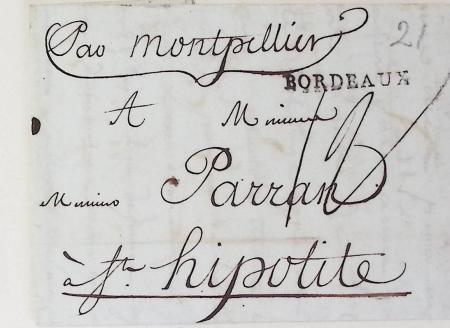 Par montpellier
21
BORDEAUX
A Monsieur
Monsieur Parran
à St. hipolite